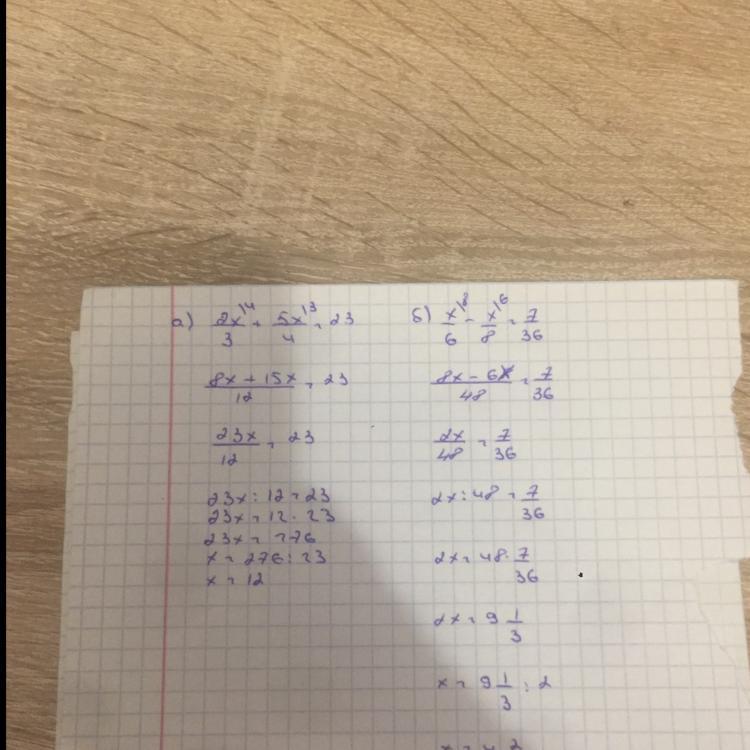 а) 2x\4/3 + 5x\3/4 = 23
(8x + 15x)/12 = 23
23x/12 = 23
23x : 12 = 23
23x = 12 · 23
23x = 276
x = 276 : 23
x = 12
б) x\8/6 - x\6/8 = 7/36
(8x - 6x)/48 = 7/36
2x/48 = 7/36
2x : 48 = 7/36
2x = 48 · 7/36
2x = 9 1/3
x = 9 1/3 : 2